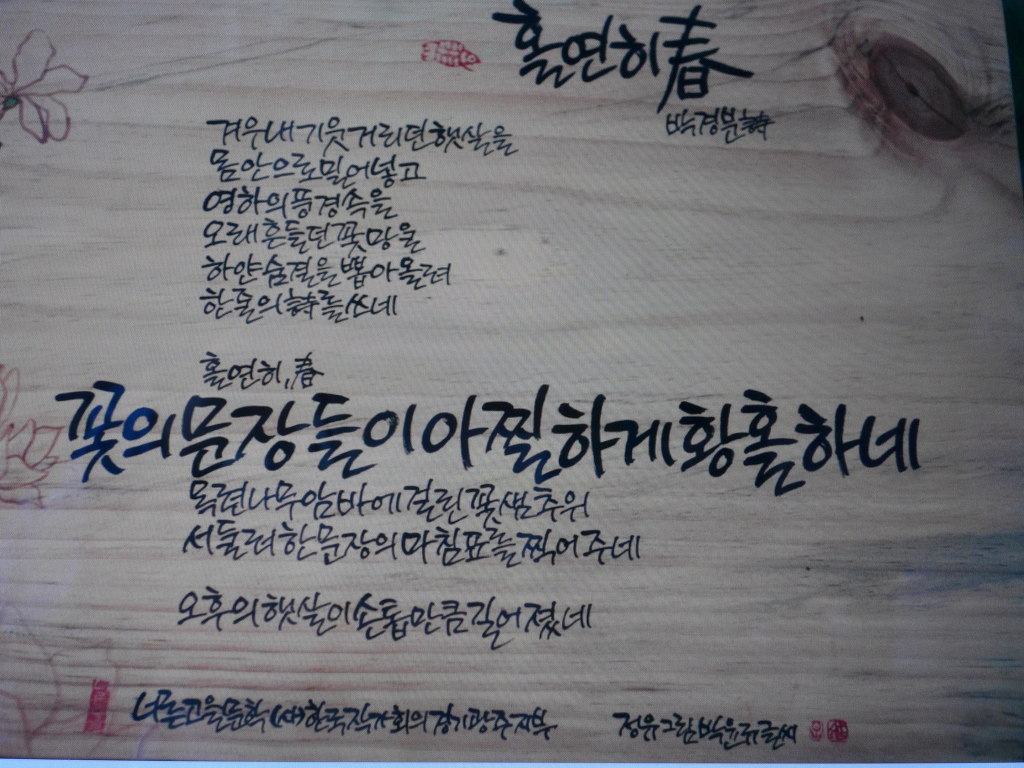 홀연히 春
박경분 詩
겨우내 기웃거리던 햇살을
몸 안으로 밀어넣고
영하의 풍경 속을
오래 흔들던 꽃망울
하얀 숨결을 뽑아올려
한 줄의 詩를 쓰네
홀연히, 春
꽃의 문장들이 아찔하게 황홀하네
목련나무 암바에 걸린 꽃샘추위
서둘러 한 문장의 마침표를 찍어주네
오후의 햇살이 손톱만큼 길어졌네
너른고을문학 (사)한국작가회의 경기광주지부
정유 그림 박윤규 글씨